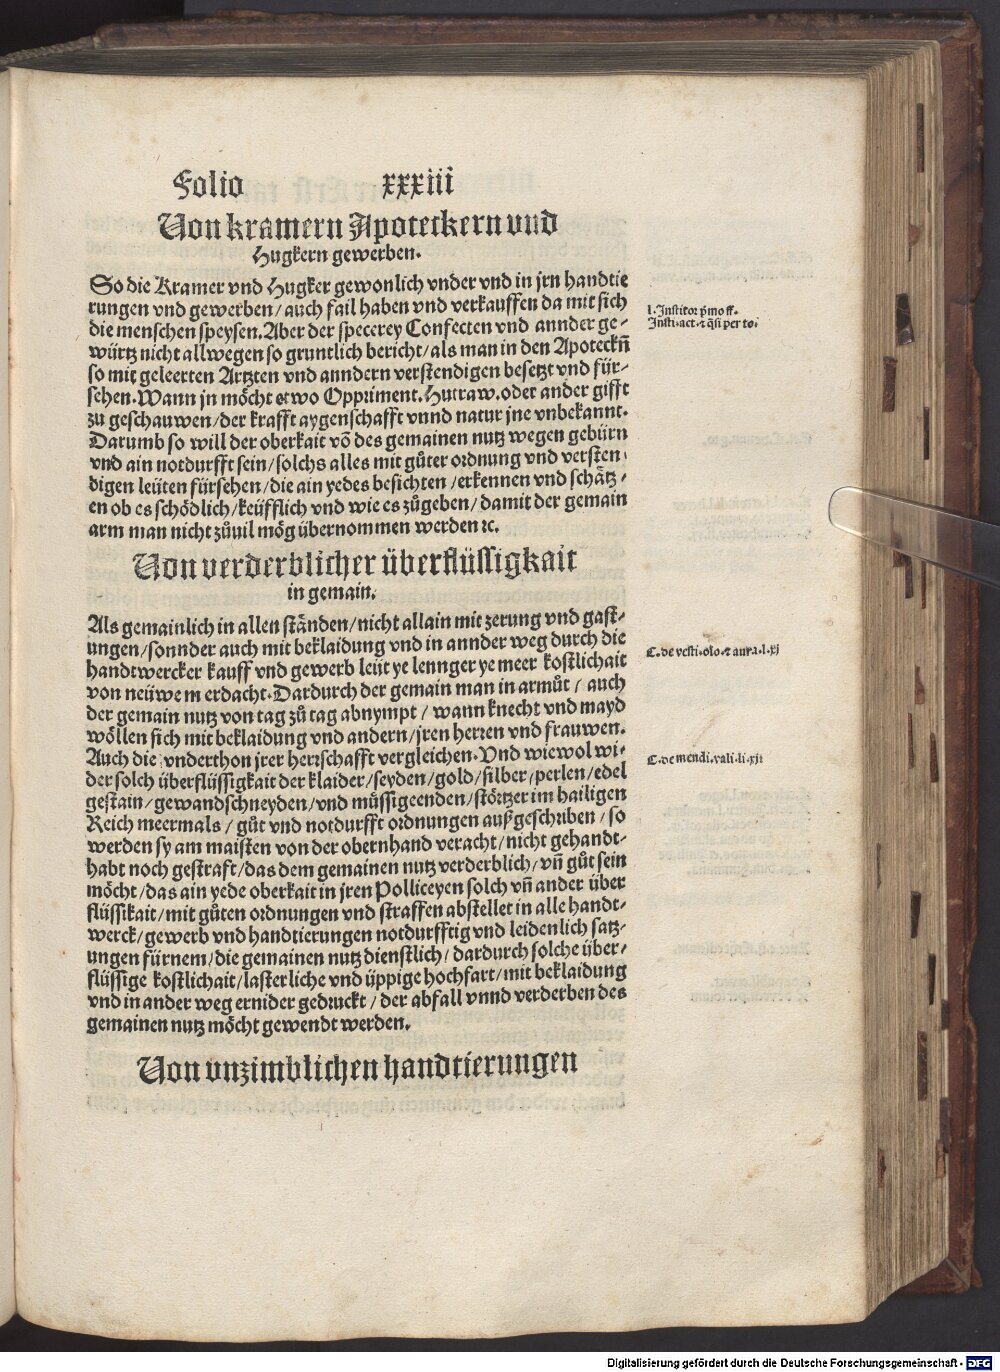 Folio xxxiii
Von kramern Apoteckern vnd
Hugkern gewerben.
So die Kramer vnd Hugker gewonlich vnder vnd in jrn handtie
rungen vnd gewerben / auch fail haben vnd verkauffen da mit sich
die menschen speysen. Aber der specerey Confecten vnd annder ge-
würtz nicht allwegen so gruntlich bericht / als man in den Apoteckn̄
so mit geleerten Artzten vnd anndern verstendigen besetzt vnd für-
sehen. Wann jn möcht etwo Oppriment. Hutraw. oder ander gifft
zu geschauwen / der krafft aygenschafft vnnd natur jne vnbekannt.
Darumb so will der oberkait vō des gemainen nutz wegen gebürn
vnd ain notdurfft sein / solchs alles mit gůter ordnung vnd versten-
digen leüten fürsehen / die ain yedes besichten / erkennen vnd schätz-
en ob es schödlich / keüfflich vnd wie es zůgeben / damit der gemain
arm man nicht zůuil mög übernommen werden ꝛc.
Von verderblicher überflüssigkait
in gemain.
Als gemainlich in allen ständen / nicht allain mit zerung vnd gast-
ungen / sonnder auch mit beklaidung vnd in annder weg durch die
handtwercker kauff vnd gewerb leüt ye lennger ye meer kostlichait
von neüwem erdacht. Dardurch der gemain man in armůt / auch
der gemain nutz von tag zů tag abnympt / wann knecht vnd mayd
wöllen sich mit beklaidung vnd andern / jren herren vnd frauwen.
Auch die vnderthon jrer herrschafft vergleichen. Vnd wiewol wi-
der solch überflüssigkait der klaider / seyden / gold / silber / perlen / edel
gestain / gewandschneyden / vnd müssigeenden / störtzer im hailigen
Reich meermals / gůt vnd notdurfft ordnungen außgeschriben / so
werden sy am maisten von der obernhand veracht / nicht gehandt-
habt noch gestraft / das dem gemainen nutz verderblich / vn̄ gůt sein
möcht / das ain yede oberkait in jren Polliceyen solch vn̄ ander über
flüssikait / mit gůten ordnungen vnd straffen abstellet in alle handt-
werck / gewerb vnd handtierungen notdurfftig vnd leidenlich satz-
ungen fürnem / die gemainen nutz dienstlich / dardurch solche über-
flüssige kostlichait / lasterliche vnd üppige hochfart / mit beklaidung
vnd in ander weg ernider gedruckt / der abfall vnnd verderben des
gemainen nutz möcht gewendt werden.
Von vnzimblichen handtierungen
l. Institor p̄mo ff.
Insti. act. ꝛ q̄si per to.
C. de vesti. olo. ꝛ aura. l. xj
C. de mendi. vali. li. xij
Digitalisierung gefördert durch die Deutsche Forschungsgemeinschaft - DFG